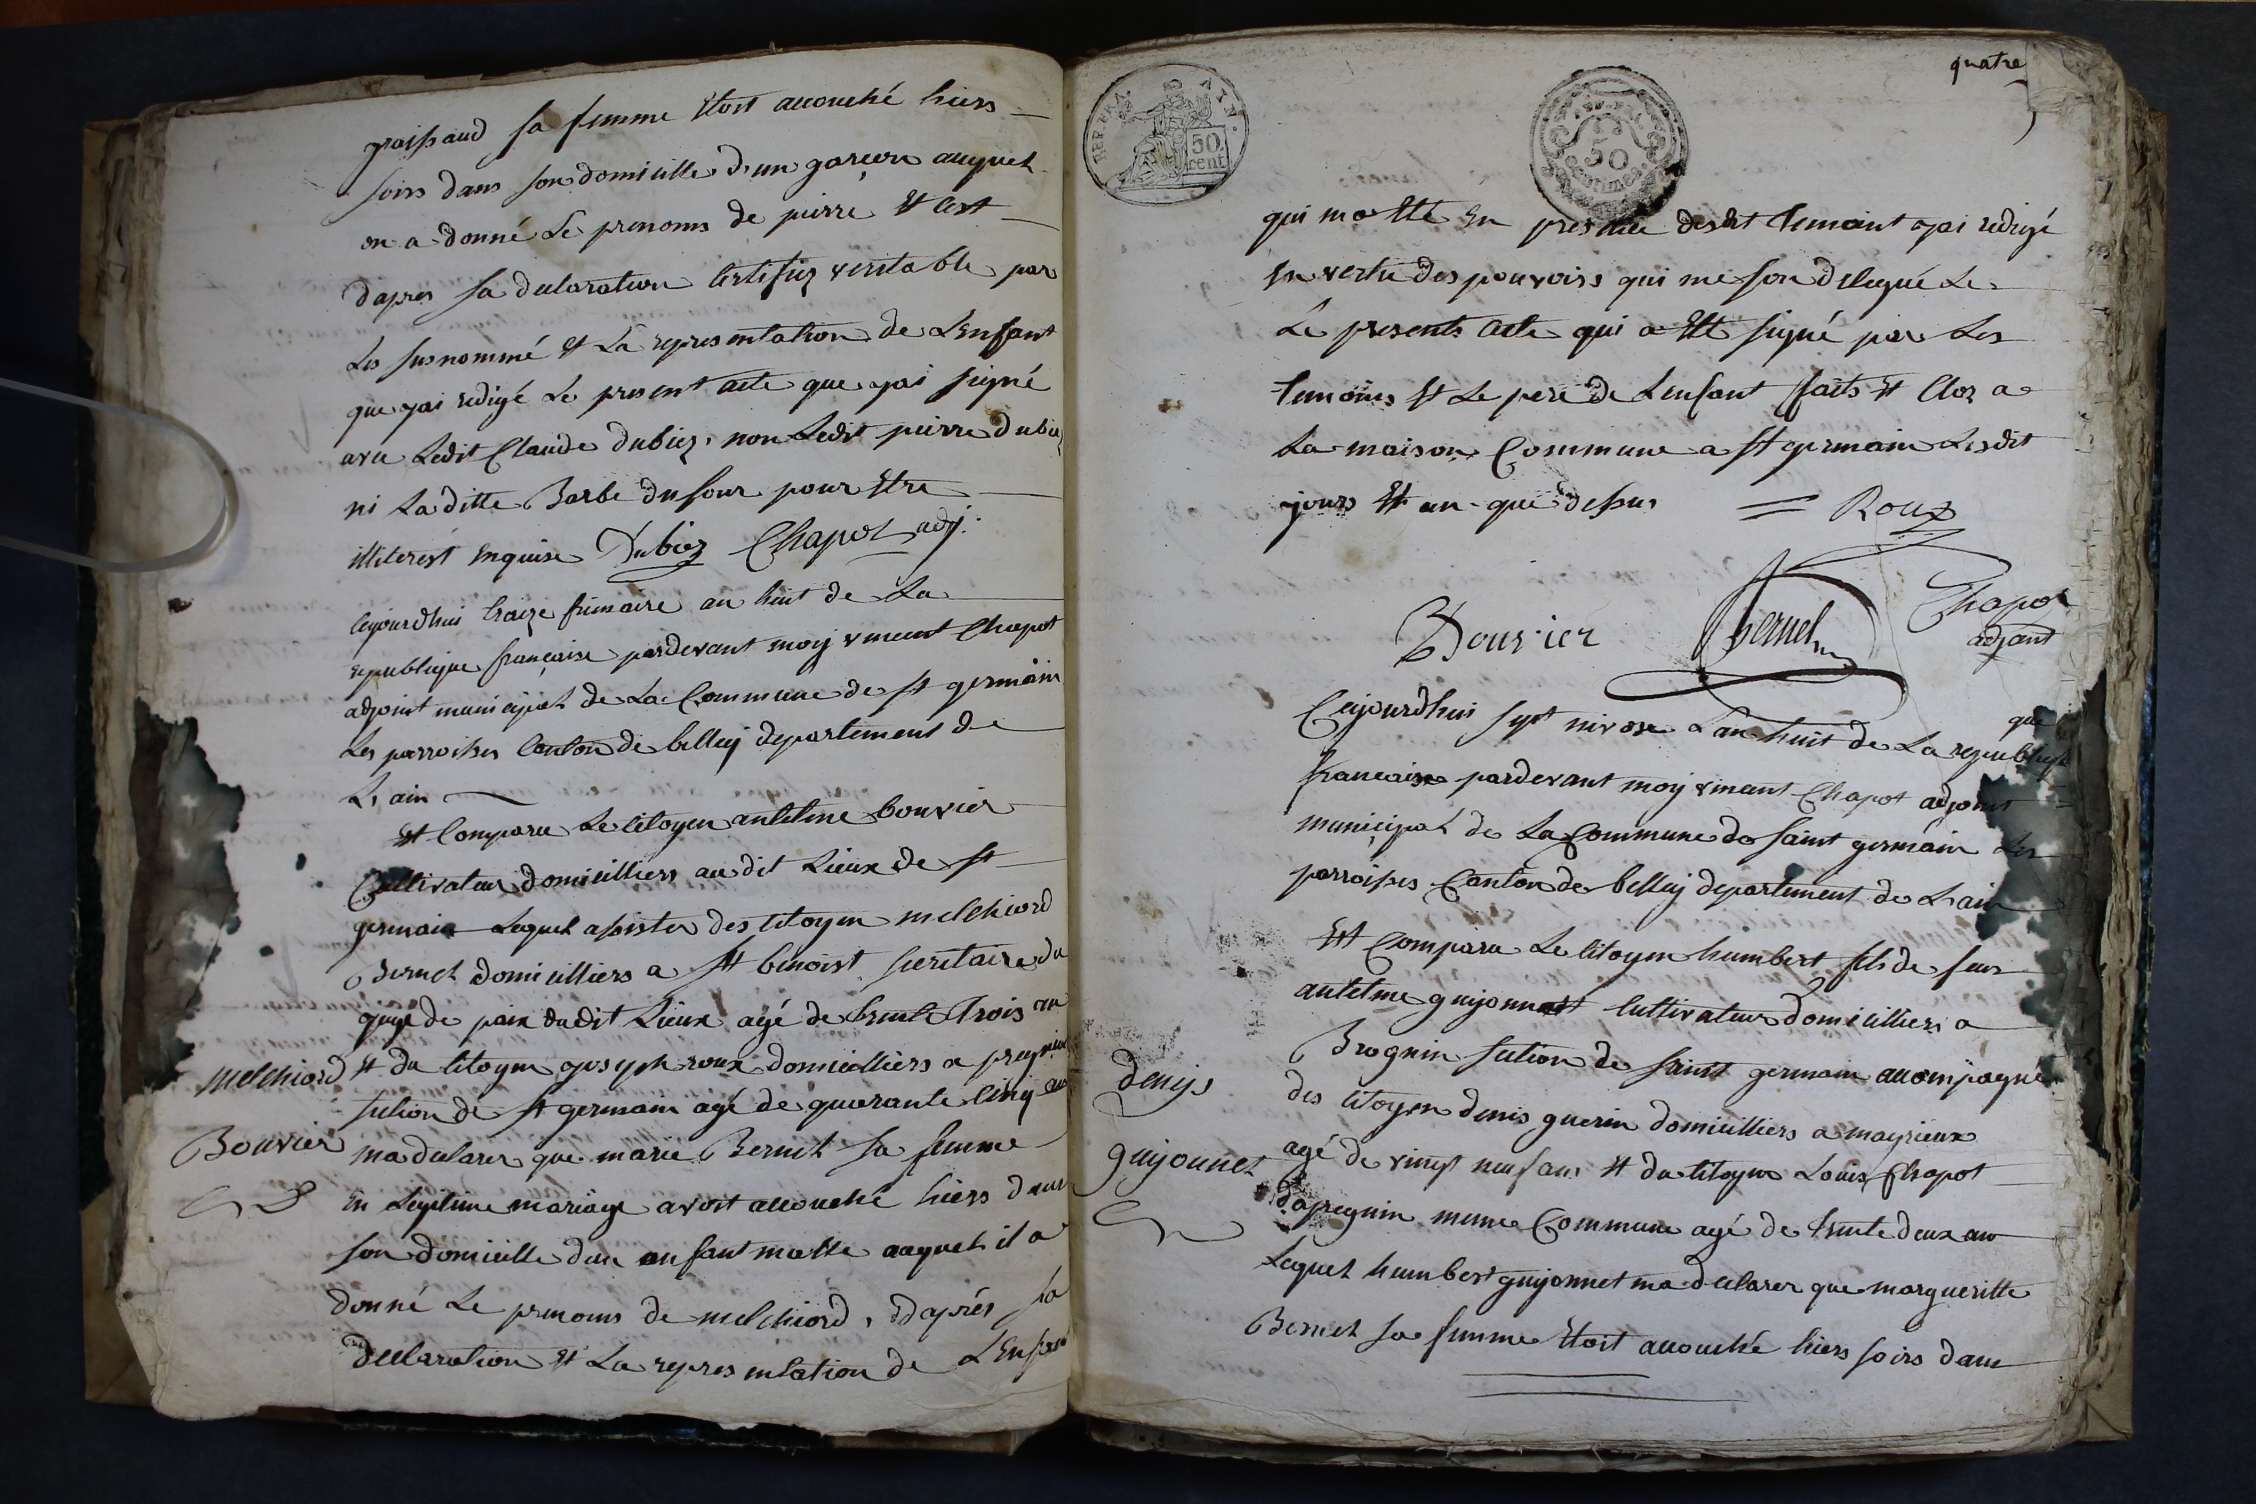 graissaud sa femme Etoit accouché hiers
soirs dans son domicille d'un garçon auquel
on a donné Le prenoms de pierre Et cest
dapres sa declaration Certifiez veritable par
Les susnommé Et La representation de L'Enfant
que jai redigé Le present acte que jai signé
avec Ledit Claude Dubiez, non Ledit pierre Dubiez
ni La ditte Barbe dufour pour Etre
illiterest Enquise Dubiez Chapot adj.
Cejourdhui traize frimaire an huit de La
republique française pardevant moy vincent Chapot
adjoint municipal de La Commune de St germain
Les parroisses Canton de belley departement de
L'ain
Est Comparu Le Citoyen antelme bouvier
Cultivateur domicilliers au dit Lieux de St
germain Lequel assister des Citoyen melchiord
Bernet domicilliers a St benoist secretaire du
juge de paix dudit Lieux agé de trente Trois an
Et du Citoyen joseph roux domicilliers a pregnin
section de St germain agé de quarante Cinq ans
ma declarer que marie Bernet sa femme
En Legitime mariage avoit accouché hiers dans
son domicille dun enfant malle auquel il a
donné Le prenoms de melchiord, daprés sa
declaration Et La representation de L'Enfant
melchiord
Bouvier
quatre
REP. FRA. AIN.
50 cent
50 centimes
qui ma Eté En presence desdit temoint jai redigé
En vertu des pouvoirs qui me son delegué Le
Le presents acte qui a Eté signé par Les
temoins Et Le pere de Lenfant faits Et Clos a
La maison Commune a St germain Lesdit
jours Et an que dessus = Roux
Bouvier Bernet Chapot
adjoint
Cejourdhui sept nivose Lan huit de La republique
francaise pardevant moy vincent Chapot adjoint
municipal de La Commune de saint germain Les
parroisses Canton de belley departement de L'ain
Est Comparu Le Citoyen humbert fils de feu
antelme guijonnet Cultivateur domicilliers a
Brognin section de saint germain accompagné
des Citoyen denis guerin domicilliers a mayrieux
agé de vingt neuf ans Et du Citoyen Louis Chapot
dapregnin meme Commune agé de trente deux an
Lequel humbert guijonnet ma declarer que margueritte
Bernet sa femme Etoit accouché hiers soirs dans
denijs
guijonnet